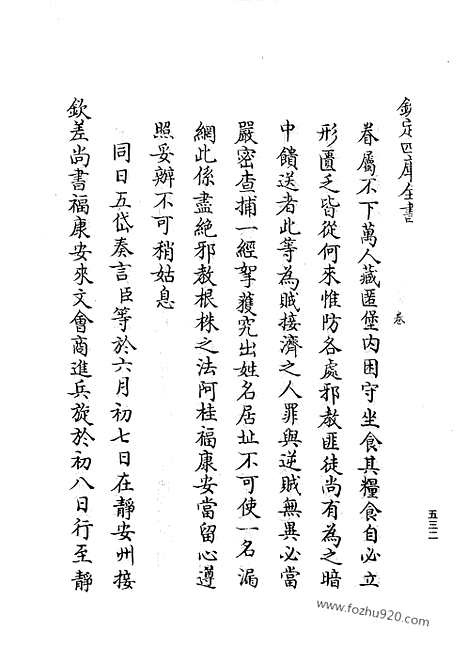 欽定四庫全書
卷
五三二
眷屬不下萬人藏匿堡内困守坐食其糧食自必立
形匱乏皆從何來惟防各處邪教匪徒尚有為之暗
中饋送者此等為賊接濟之人罪與逆賊無異必當
嚴密查捕一經拏獲究出姓名居址不可使一名漏
網此係盡絶邪教根株之法阿桂福康安當留心遵
照妥辦不可稍姑息
同日五岱奏言臣等於六月初七日在靜安州接
欽差尚書福康安來文會商進兵旋於初八日行至靜
www.fozhu920.com